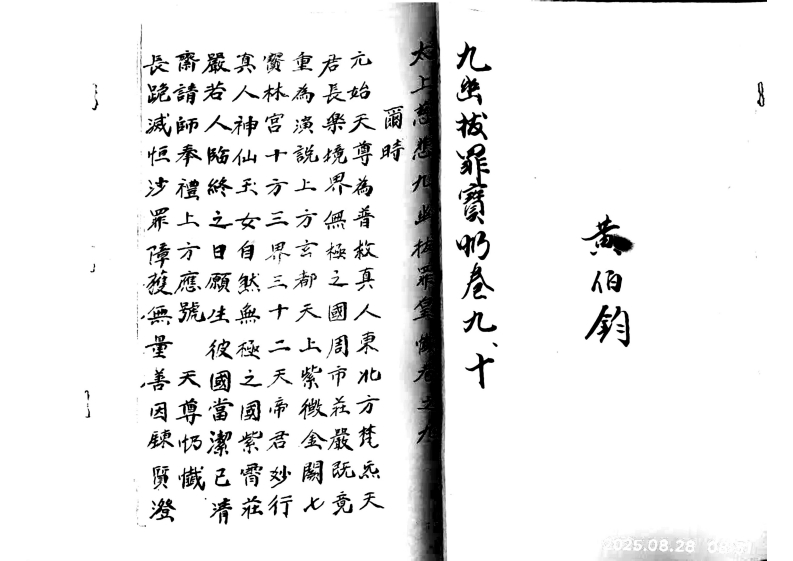 黃伯鈞
九幽拔罪寶忏卷九、十
太上慈悲九幽拔罪寶懺卷之九
爾時
元始天尊為普救真人東北方梵炁天
君長樂境界無極之國周帀莊嚴既竟
重為演說上方玄都天上紫微金闕七
寳林宮十方三界三十二天帝君妙行
真人神仙玉女自然無極之國紫霄莊
嚴若人臨終之日願生彼國當潔己清
齋請師奉禮上方應號 天尊忉懺
長跪滅恒沙罪障獲無量善因鍊質澄
2025.08.28